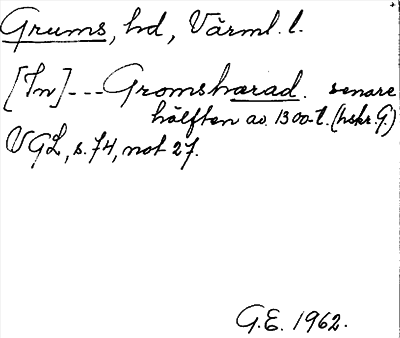 Grums, hd, Värml. l.
[In]---Gromshærad. senare
hälften av 1300-t. (hskr. G.)
VGL, s. 74, not 27.
G.E. 1962.